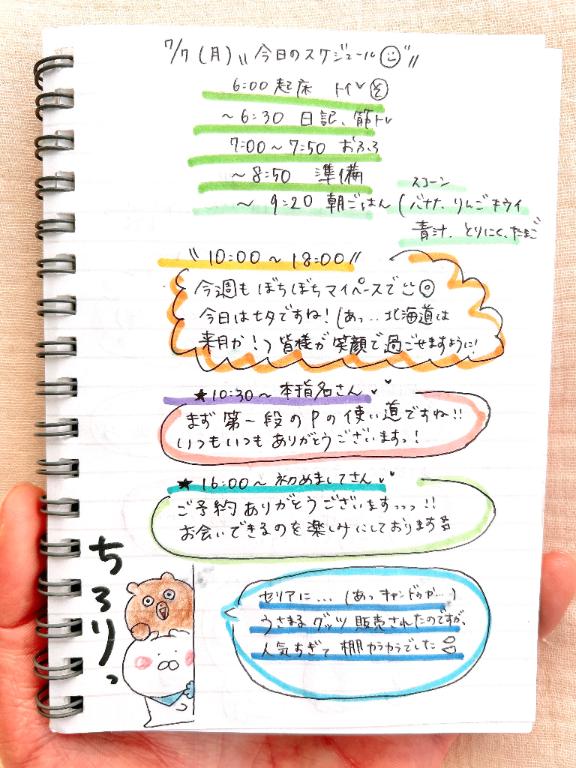 7/7(月) 〃今日のスケジュール〃
6:00 起床 トイレ
〜6:30 日記、筋トレ
7:00〜7:50 おふろ
〜8:50 準備
〜9:20 朝ごはん(バナナ、りんご キウイ
スコーン
青汁、とりにく、たまご
〃10:00〜18:00〃
今週も ぼちぼちマイペースで
今日は七夕ですね!(あっ..北海道は
来月か!)皆様が笑顔で過ごせますように!
★10:30〜本指名さん
まず 第一段の Pの使い道ですね!!
いつもいつも ありがとうございますっ!
★16:00〜初めましてさん
ご予約ありがとうございますっっっ!!
お会いできるのを楽しみにしております
ちろりっ
セリアに...(あっ キャンドゥか...)
うさまる グッツ 販売されたのですが、
人気すぎて 棚カラカラでした